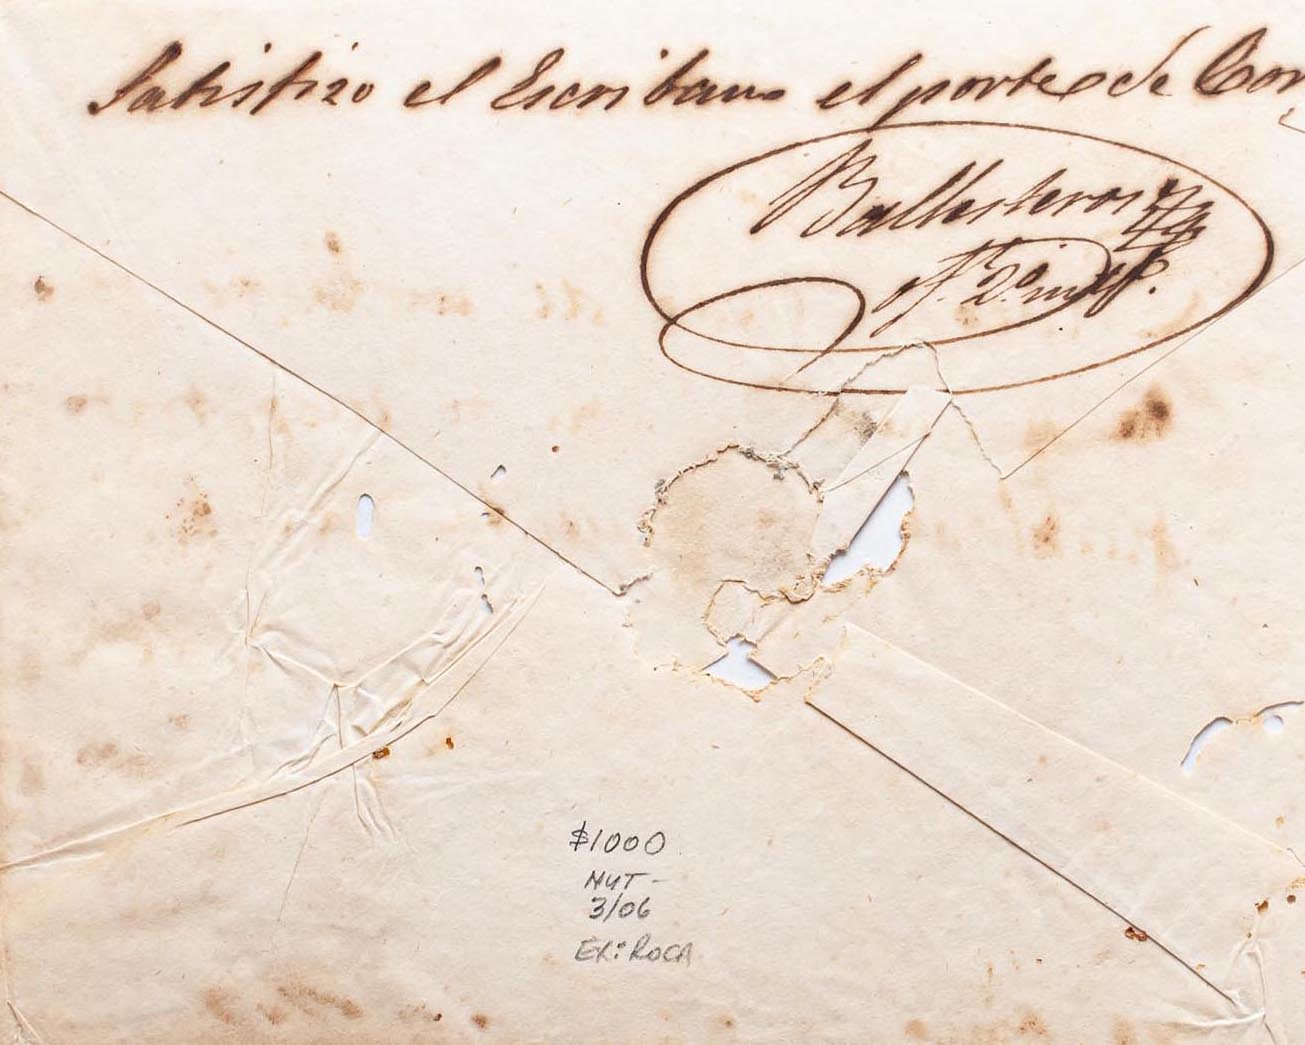 Satisfizo el Escribano el porte de Cor
Ballesteros
of. 2º
$1000
NUT-
3/06
EX: ROCA